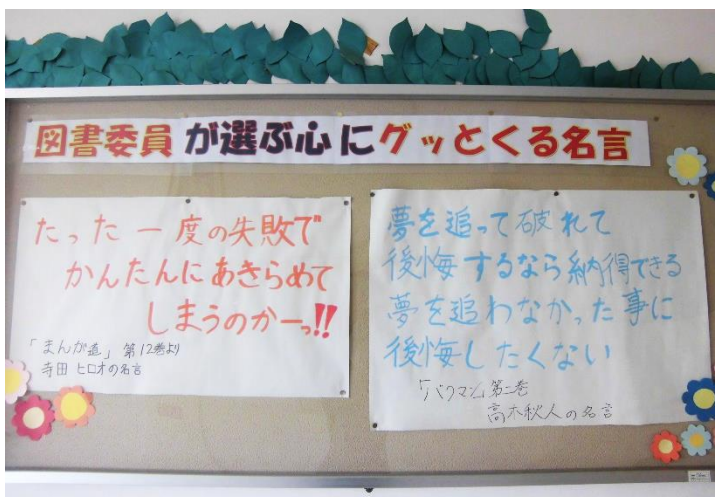 図書委員が選ぶ心にグッとくる名言
たった一度の失敗で
かんたんにあきらめて
しまうのかーっ!!
「まんが道」第12巻より
寺田ヒロオの名言
夢を追って破れて
後悔するなら納得できる
夢を追わなかった事に
後悔したくない
「バクマン」第二巻
高木秋人の名言